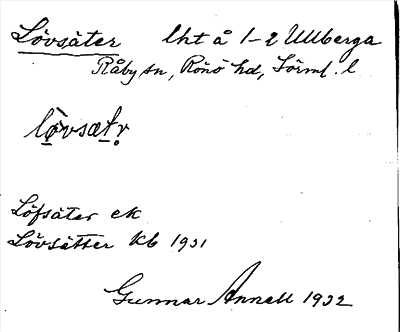 Lövsäter lht å 1-2 Ullberga
Råby sn, Rönö hd, Sörml. l
lø̀vsætr
Löfsäter ek
Lövsätter kb 1931
Gunnar Annell 1932